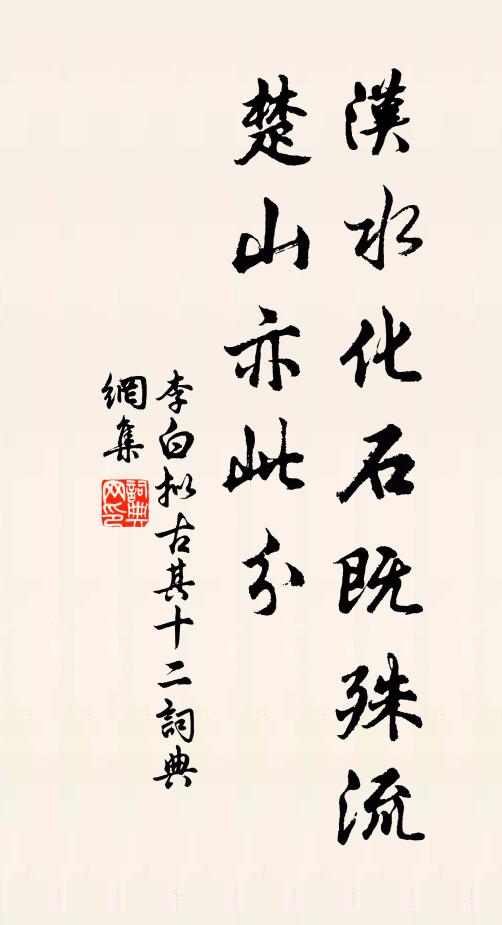 漢水化石既殊流
楚山亦此分
李白拟古其十二詞典
網集
詞典
网印